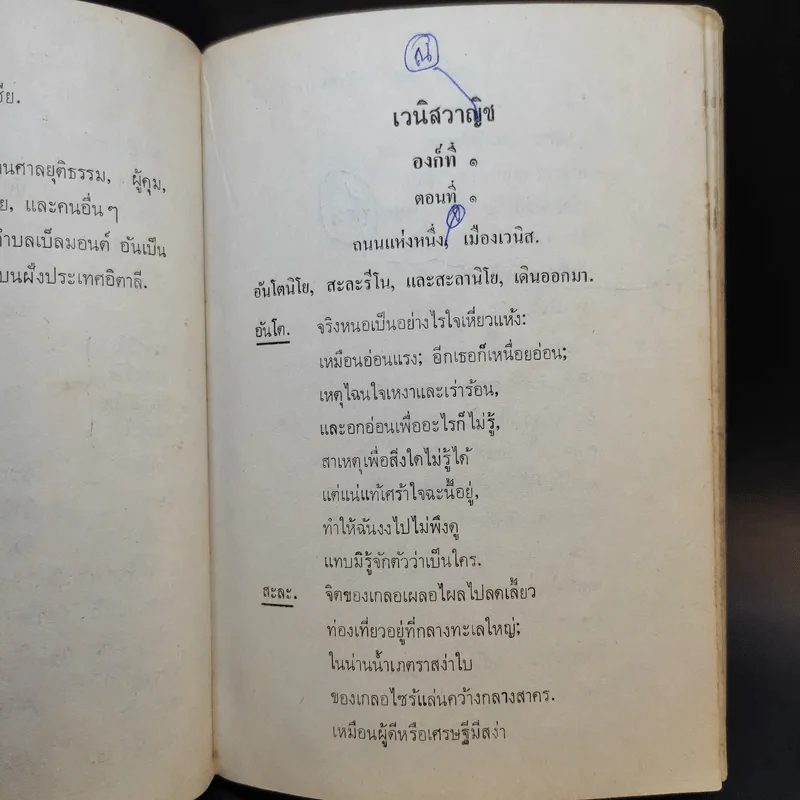 ชีย.
นศาลยุติธรรม, ผู้คุม,
ย, และคนอื่นๆ
ำบลเบ็ลมอนต์ อันเป็น
บนฝั่งประเทศอิตาลี.
ณ์
เวนิสวาณิช
องก์ที่ ๑
ตอนที่ ๑
ถนนแห่งหนึ่ง, เมืองเวนิส.
อันโตนิโย, สะละรีโน, และสะลานิโย, เดินออกมา.
อันโต. จริงหนอเป็นอย่างไรใจเหี่ยวแห้ง:
เหมือนอ่อนแรง; อีกเธอก็เหนื่อยอ่อน;
เหตุไฉนใจเหงาและเร่าร้อน,
และอกอ่อนเพื่ออะไรก็ไม่รู้,
สาเหตุเพื่อสิ่งใดไม่รู้ได้
แต่แน่แท้เศร้าใจฉะนี้อยู่,
ทำให้ฉันงงไปไม่พึงดู
แทบมิรู้จักตัวว่าเป็นใคร.
สะละ. จิตของเกลอเผลอไผลไปลดเลี้ยว
ท่องเที่ยวอยู่ที่กลางทะเลใหญ่;
ในน่านน้ำเภตราสง่าใบ
ของเกลอไซร้แล่นคว้างกลางสาคร.
เหมือนผู้ดีหรือเศรษฐีมีสง่า